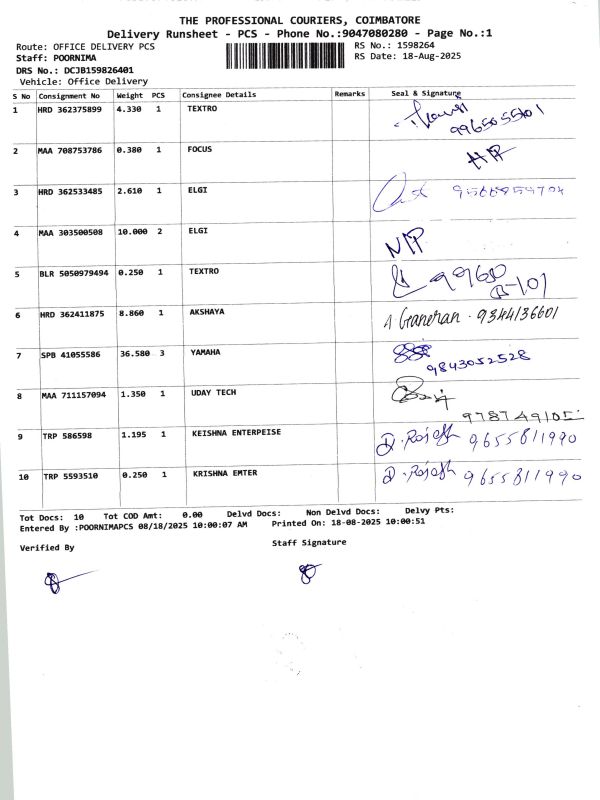 THE PROFESSIONAL COURIERS, COIMBATORE
Delivery Runsheet - PCS - Phone No.:9047080280 - Page No.:1
Route: OFFICE DELIVERY PCS RS No.: 1598264
Staff: POORNIMA RS Date: 18-Aug-2025
DRS No.: DCJB159826401
Vehicle: Office Delivery
S No Consignment No Weight PCS Consignee Details Remarks Seal & Signature
1 HRD 362375899 4.330 1 TEXTRO
2 MAA 708753786 0.380 1 FOCUS
3 HRD 362533485 2.610 1 ELGI
4 MAA 303500508 10.000 2 ELGI
5 BLR 5050979494 0.250 1 TEXTRO
6 HRD 362411875 8.860 1 AKSHAYA 9344136601
7 SPB 41055586 36.580 3 YAMAHA 9843052528
8 MAA 711157094 1.350 1 UDAY TECH
9 TRP 586598 1.195 1 KEISHNA ENTERPEISE D. Rojesh 9655811990
10 TRP 5593510 0.250 1 KRISHNA EMTER D. Rojesh 9655811990
Tot Docs: 10 Tot COD Amt: 0.00 Delvd Docs: Non Delvd Docs: Delvy Pts:
Entered By :POORNIMAPCS 08/18/2025 10:00:07 AM Printed On: 18-08-2025 10:00:51
Verified By Staff Signature